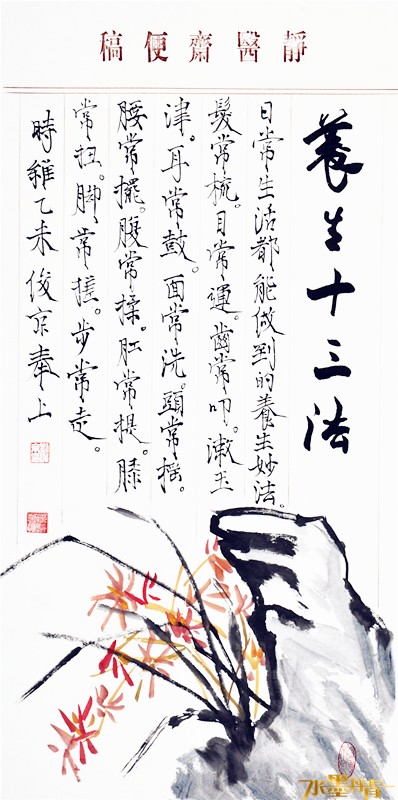 靜醫齋便稿
養生十三法
日常生活都能做到的養生妙法。
髮常梳。目常運。齒常叩。漱玉
津。耳常鼓。面常洗。頭常搖。
腰常擺。腹常揉。肛常提。膝
常扭。脚常搓。步常走。
時雞乙未俊京奉上
水墨丹青